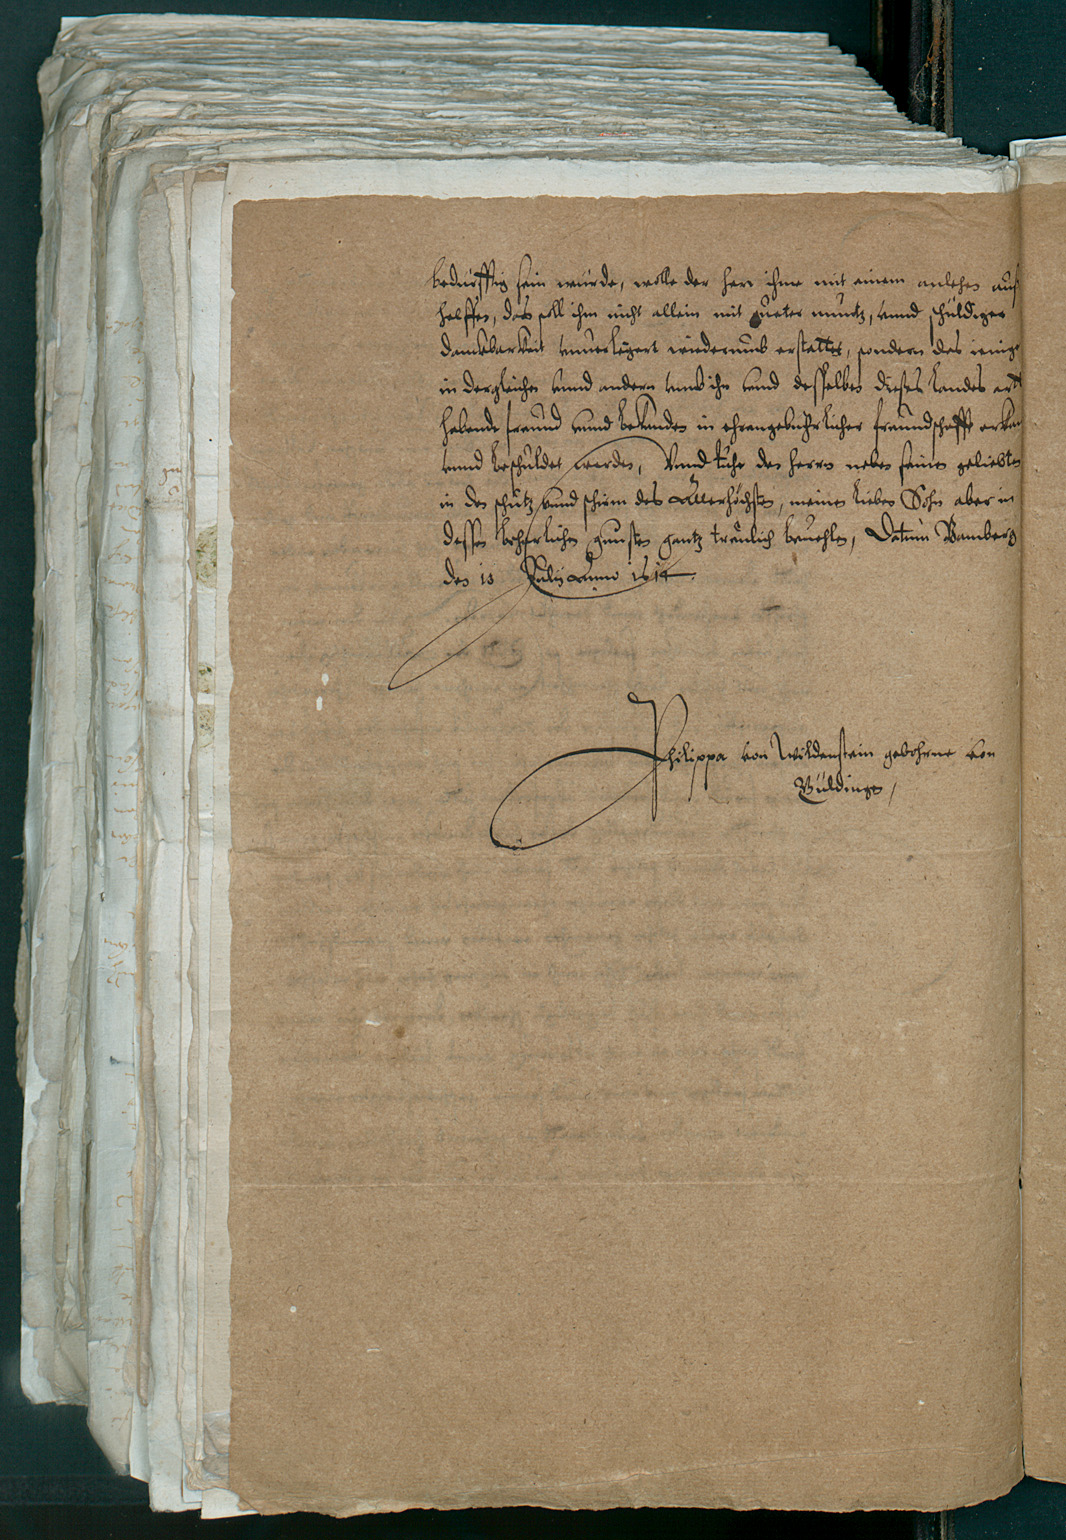 bedürfftig sein würde, wolle der herr ihme mit einem anlehen auß
helffen, das soll ihm nicht allein mit gueter müntz, vnnd schüldiger
danckbarkeit vnuerlengert wiederumb erstattet, sondern des ienige
in dergleichen vnnd andern vmb ihn vnnd desselben dieses Landes ortt
habende freünd vnnd bekanden in ehrngebührlicher freündschafft erkan
vnnd beschüldet werden, Vnnd thue den herrn neben seiner geliebten
in den schütz vnnd schirm des Allerhöchsten, meinen lieben Sohn aber in
dessen beharlichen gunsten gantz treülich beuehlen, Datum Bamberg
den 10 Julij Anno 1614.
Philippa von Wildenstein gebohrne von
Wüldings,